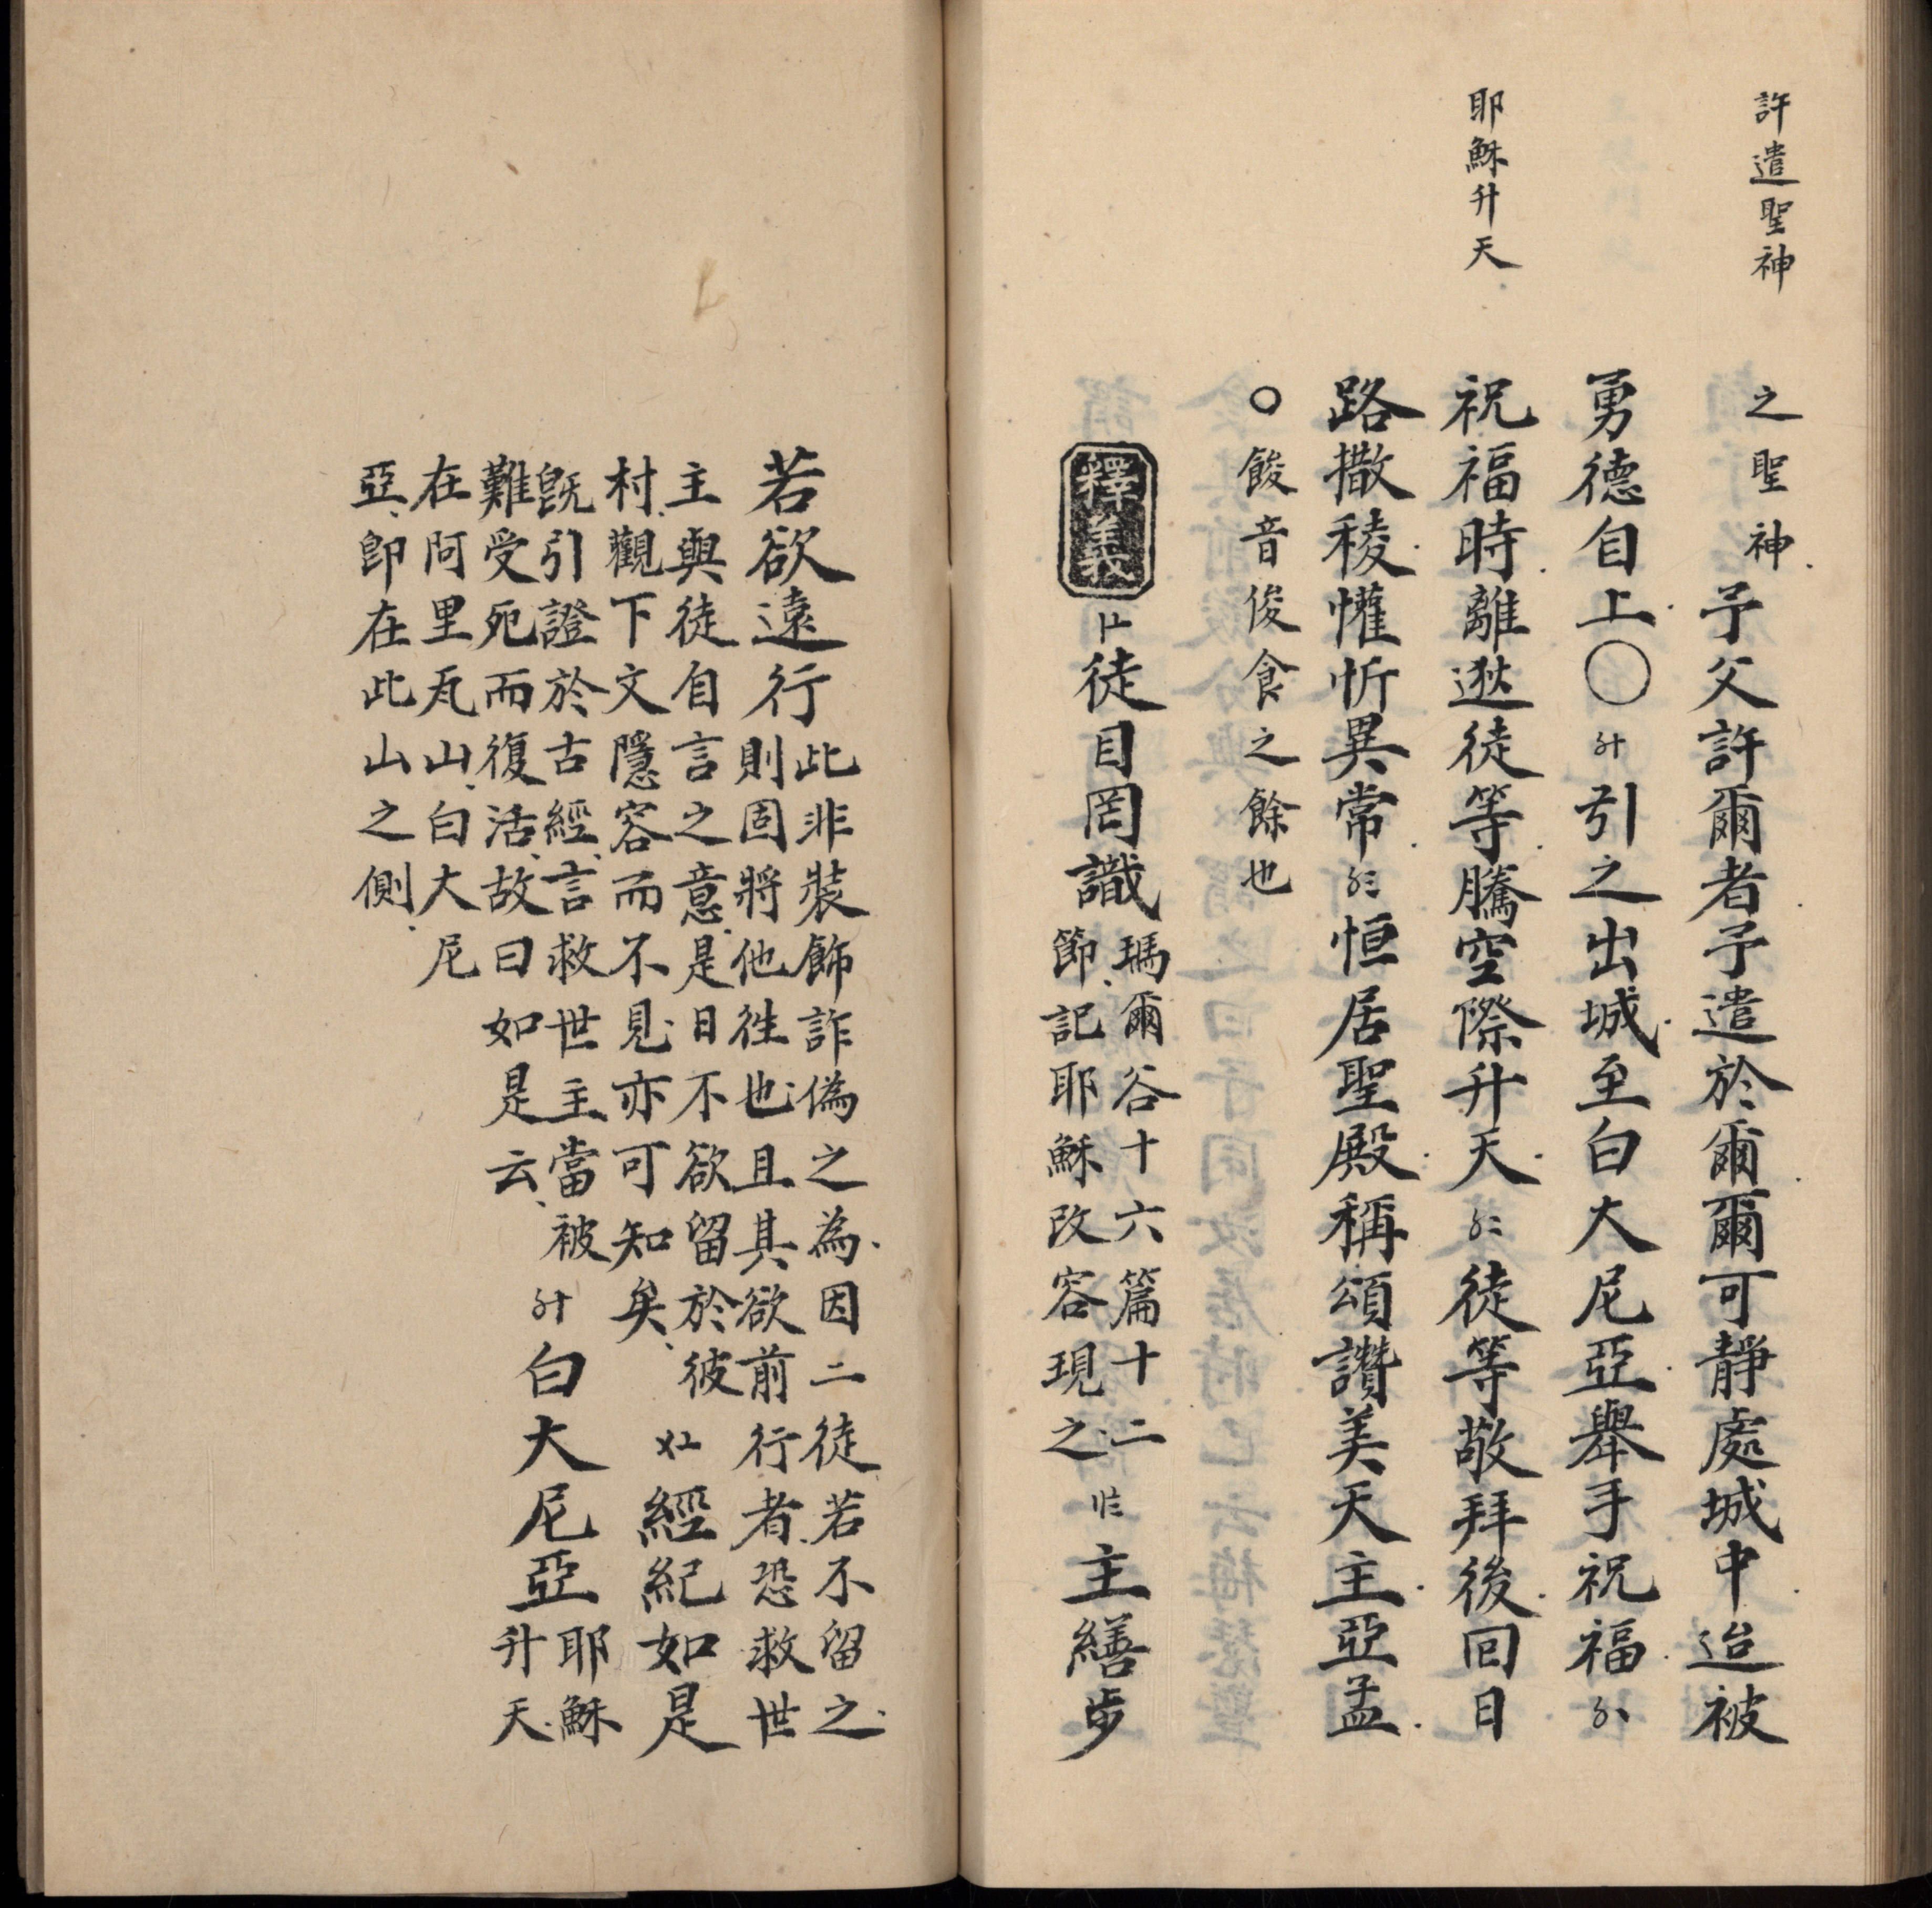 許遣聖神
之聖神予父許爾者予遣於爾爾可靜處城中迨被
勇德自上〇〥十引之出城至白大尼亞舉手祝福
耶穌升天
祝福時離逖徒等騰空際升天〥二徒等敬拜後回日
路撒稜懽忻異常〥三恒居聖殿稱頌讚美天主亞孟
〇餕音俊食之餘也
釋義
徒目罔識
瑪爾谷十六篇十二
節記耶穌改容現之
主繕步
若欲遠行
此非裝飾詐偽之為因二徒若不留之
則固將他往也且其欲前行者恐救世
主與徒自言之意是日不欲留於彼
村觀下文隱容而不見亦可知矣
經紀如是
既引證於古經言救世主當被
難受死而復活故曰如是云
〥十白大尼亞
耶穌
升天
在阿里瓦山白大尼
亞即在此山之側